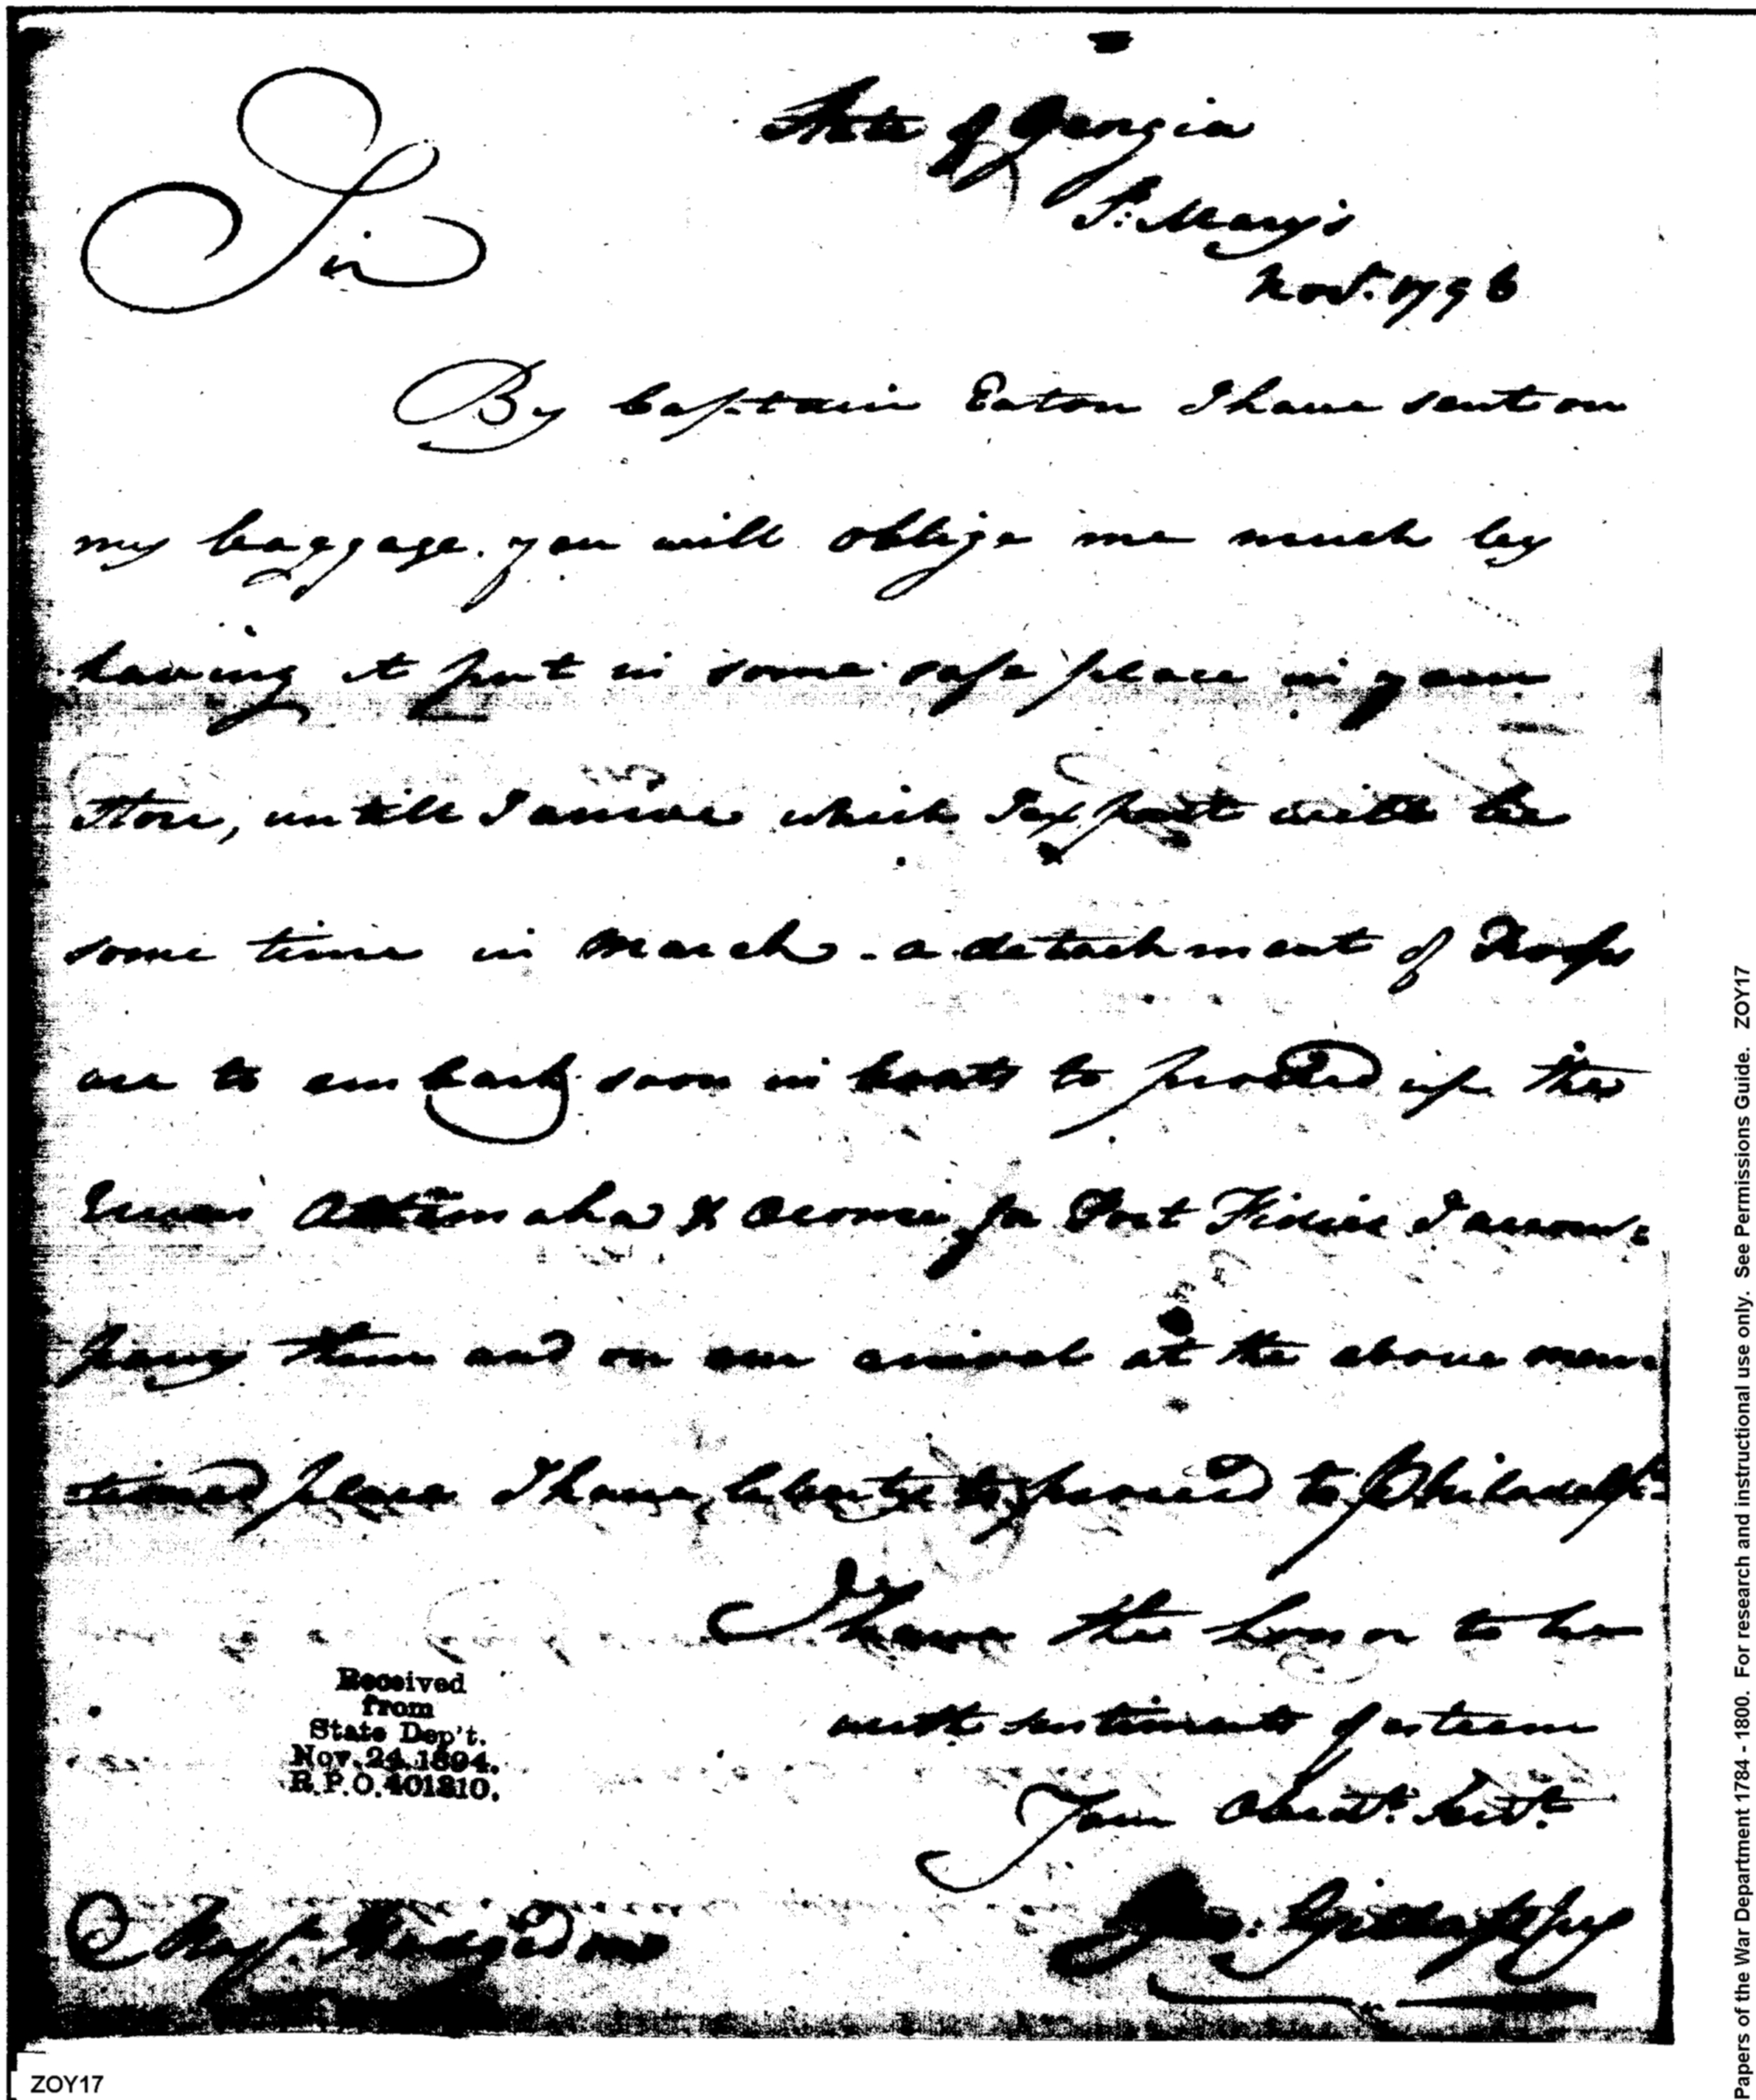 State of Georgia
St. Mary's
Novr. 1796
Sir
By Captain Eaton I have sent on
my baggage. you will oblige me much by
having it put in some safe place in your
Store, untill I arrive which I expect will be
some time in March. a detachment of Troops
are to embark soon in boats to proceed up the
Rivers Attamaha & Oconee, for Fort Fidius I accom=
pany them and on our arrival at the above men=
tioned place I have liberty to proceed to Philadelp=
I have the honor to be
with sentiments of esteem
Your Obedt. Servt.
Geo: Gillasspy
Majr. Hodgdon
Received
from
State Dep't.
Nov. 24. 1894.
R.P.O. 401310.
ZOY17
Papers of the War Department 1784 - 1800. For research and instructional use only. See Permissions Guide. ZOY17